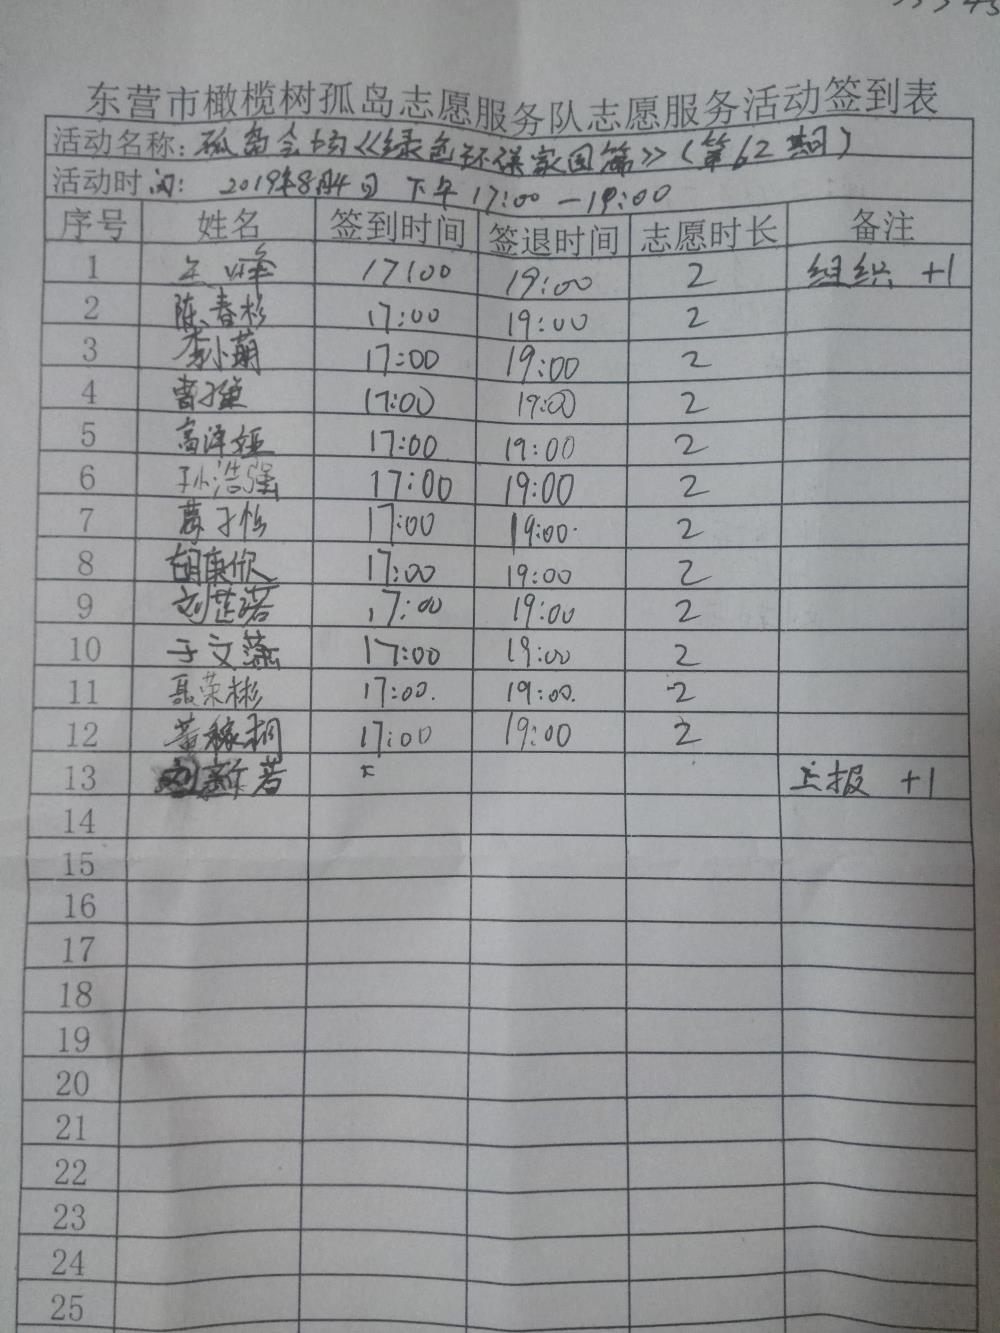 东营市橄榄树孤岛志愿服务队志愿服务活动签到表
活动名称：孤岛会场《绿色环保家园篇》（第62期）
活动时间：2019年8月4日 下午17:00—19:00
序号 姓名 签到时间 签退时间 志愿时长 备注
1 王峰 17:00 19:00 2 组织 +1
2 陈春杉 17:00 19:00 2
3 李小萌 17:00 19:00 2
4 17:00 19:00 2
5 17:00 19:00 2
6 孙浩强 17:00 19:00 2
7 17:00 19:00 2
8 胡康欣 17:00 19:00 2
9 刘芷诺 17:00 19:00 2
10 于文 17:00 19:00 2
11 聂荣彬 17:00 19:00 2
12 黄稼桐 17:00 19:00 2
13 上报 +1
14
15
16
17
18
19
20
21
22
23
24
25